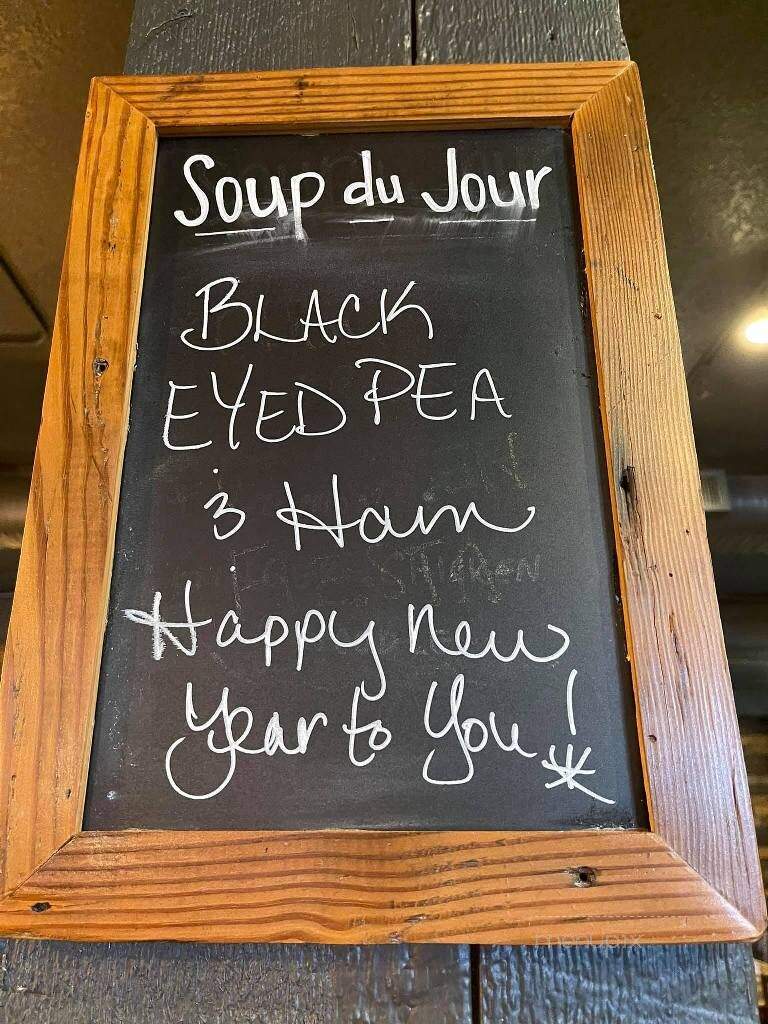 Soup du Jour
BLACK
EYED PEA
& Ham
Happy New
Year to You!